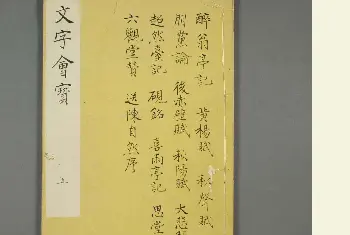 醉翁亭記 黃楊賦 秋聲賦
朋黨論 後赤壁賦 秋陽賦 大悲
超然臺記 硯銘 喜雨亭記 思堂
六觀堂贊 送陳自然序
文字會寶 上